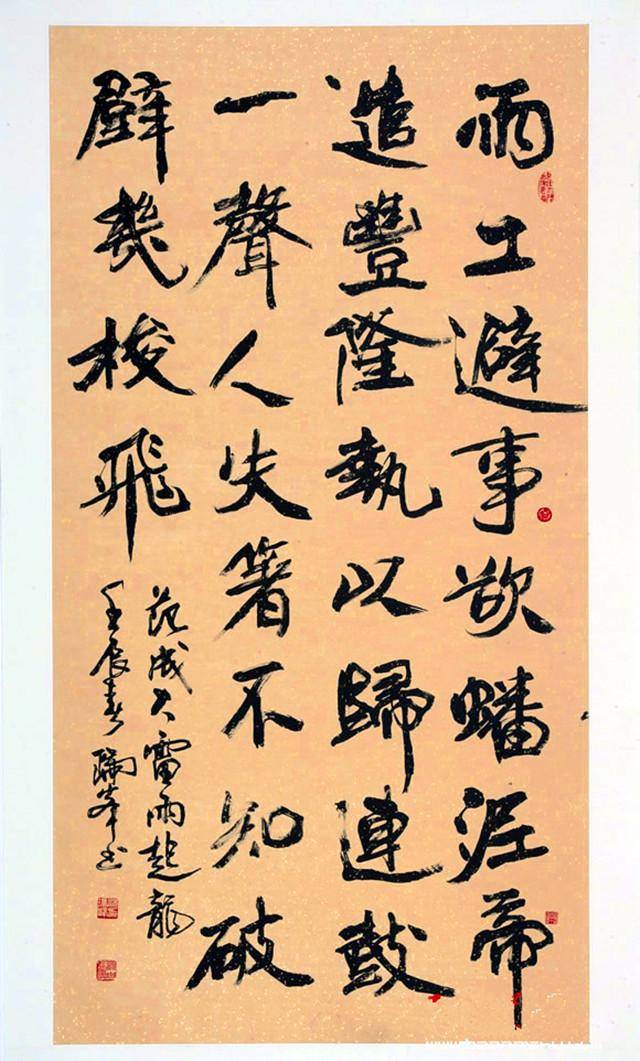 雨工避事欲蟠泥帝
造豐隆執以歸連鼓
一聲人失箸不知破
壁幾梭飛
范成大雷雨起龍
壬辰春瑞峰书